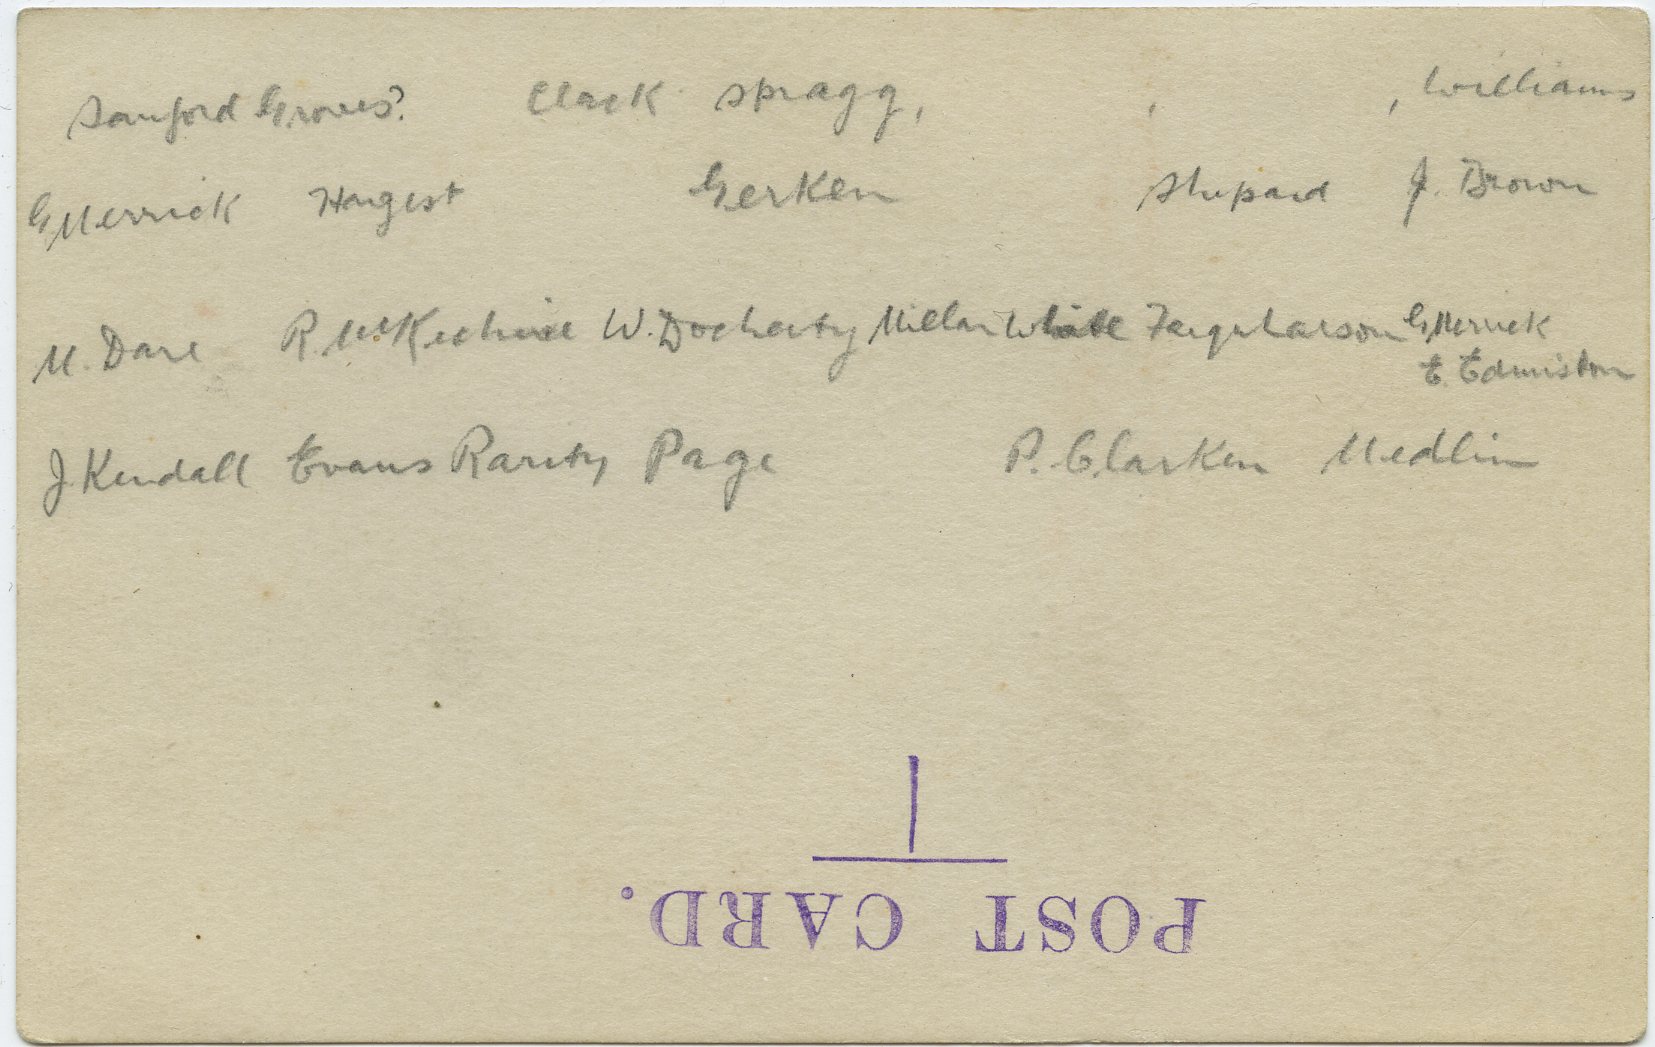 Sanford Groves? Clark Spragg, , , Williams
G Merrick Hargest Gerken Shepard J. Brown
M. Dare R. McKechnie W. Docherty Millar White Farquharson G Merrick
E. Edmiston
J Kendall Evans Rarity Page P. Clarken Medlin
POST CARD.